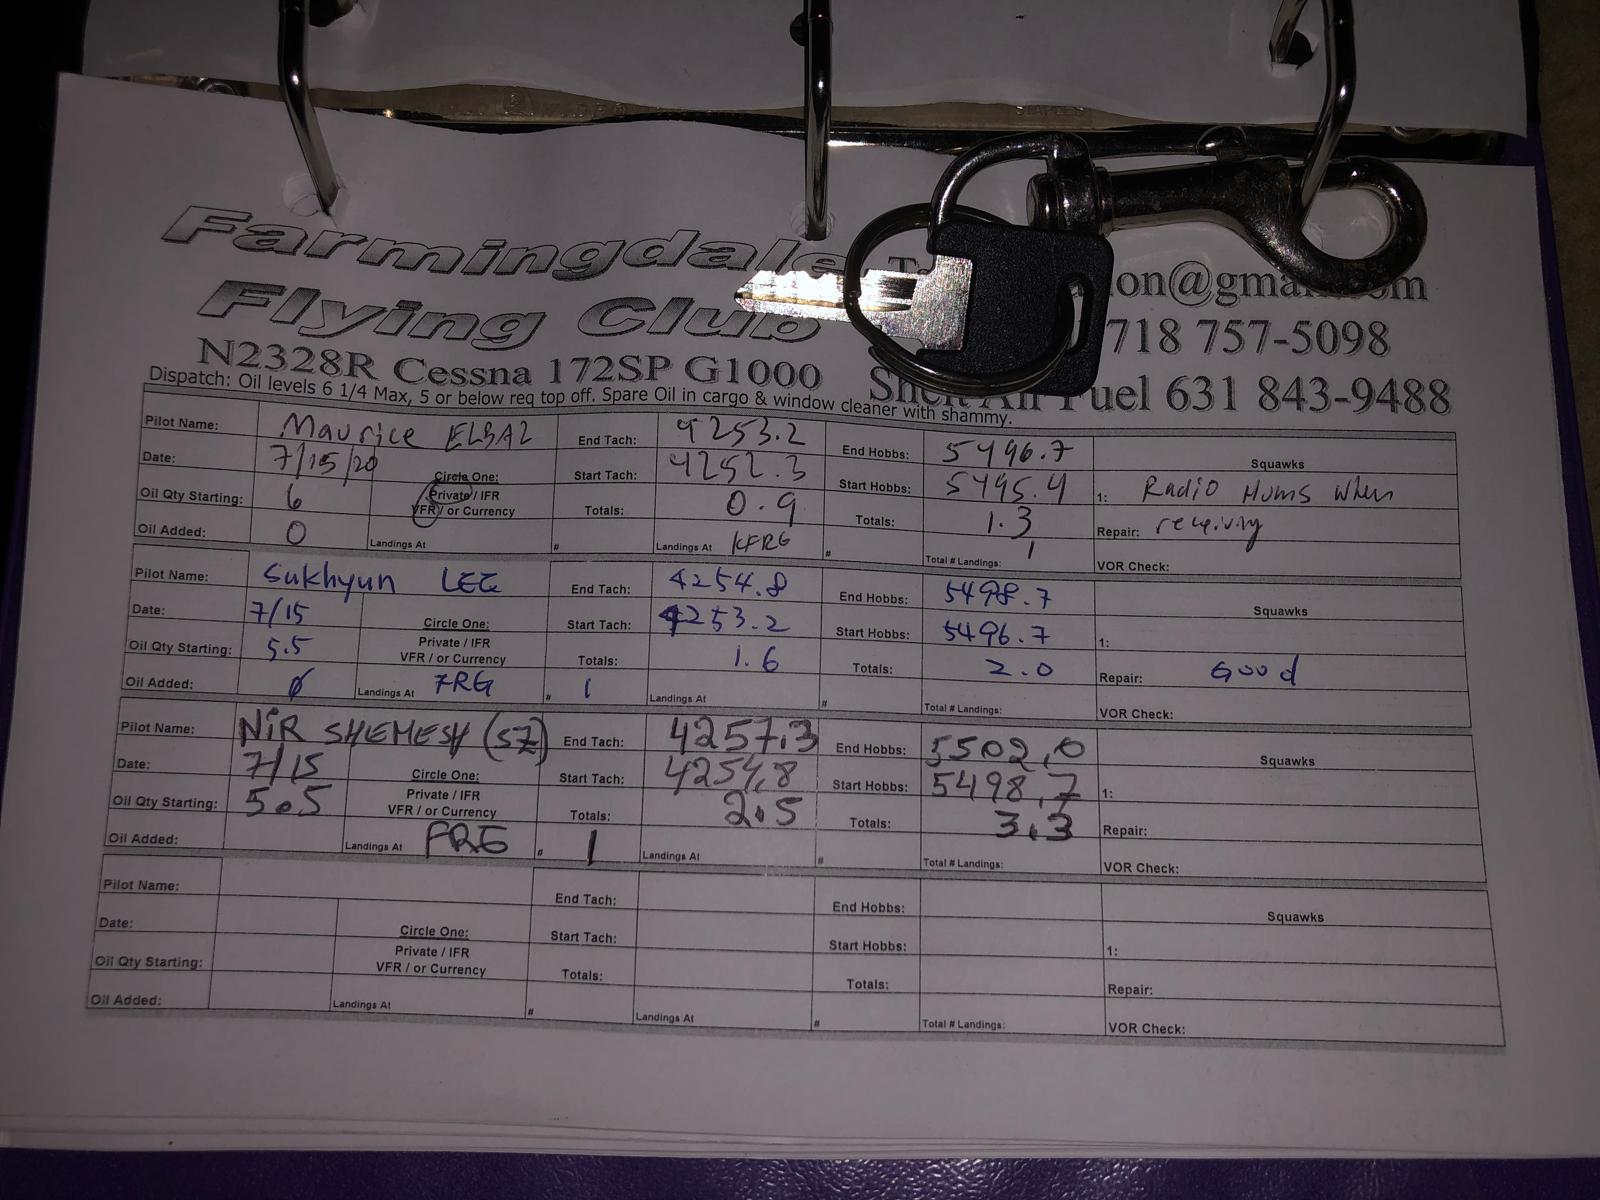 Farmingdale
Flying Club
on@gmail.com
718 757-5098
N2328R Cessna 172SP G1000
Fuel 631 843-9488
Dispatch: Oil levels 6 1/4 Max, 5 or below req top off. Spare Oil in cargo & window cleaner with shammy.
Pilot Name: Maurice ELBAZ End Tach: 4253.2 End Hobbs: 5496.7 Squawks
Date: 7/15/20 Circle One: Start Tach: 4252.3 Start Hobbs: 5495.4 1: Radio Hums when
Oil Qty Starting: 6 Private / IFR VFR / or Currency Totals: 0.9 Totals: 1.3 Repair: receiving
Oil Added: 0 Landings At # Landings At KFRG # Total # Landings: 1 VOR Check:
Pilot Name: Sukhyun LEE End Tach: 4254.8 End Hobbs: 5498.7 Squawks
Date: 7/15 Circle One: Start Tach: 4253.2 Start Hobbs: 5496.7 1:
Oil Qty Starting: 5.5 Private / IFR VFR / or Currency Totals: 1.6 Totals: 2.0 Repair: Good
Oil Added: 0 Landings At FRG # 1 Landings At # Total # Landings: VOR Check:
Pilot Name: NIR SHEMESH (SZ) End Tach: 4257.3 End Hobbs: 5502.0 Squawks
Date: 7/15 Circle One: Start Tach: 4254.8 Start Hobbs: 5498.7 1:
Oil Qty Starting: 5.5 Private / IFR VFR / or Currency Totals: 2.5 Totals: 3.3 Repair:
Oil Added: Landings At FRG # 1 Landings At # Total # Landings: VOR Check:
Pilot Name: End Tach: End Hobbs: Squawks
Date: Circle One: Start Tach: Start Hobbs: 1:
Oil Qty Starting: Private / IFR VFR / or Currency Totals: Totals: Repair:
Oil Added: Landings At # Landings At # Total # Landings: VOR Check: